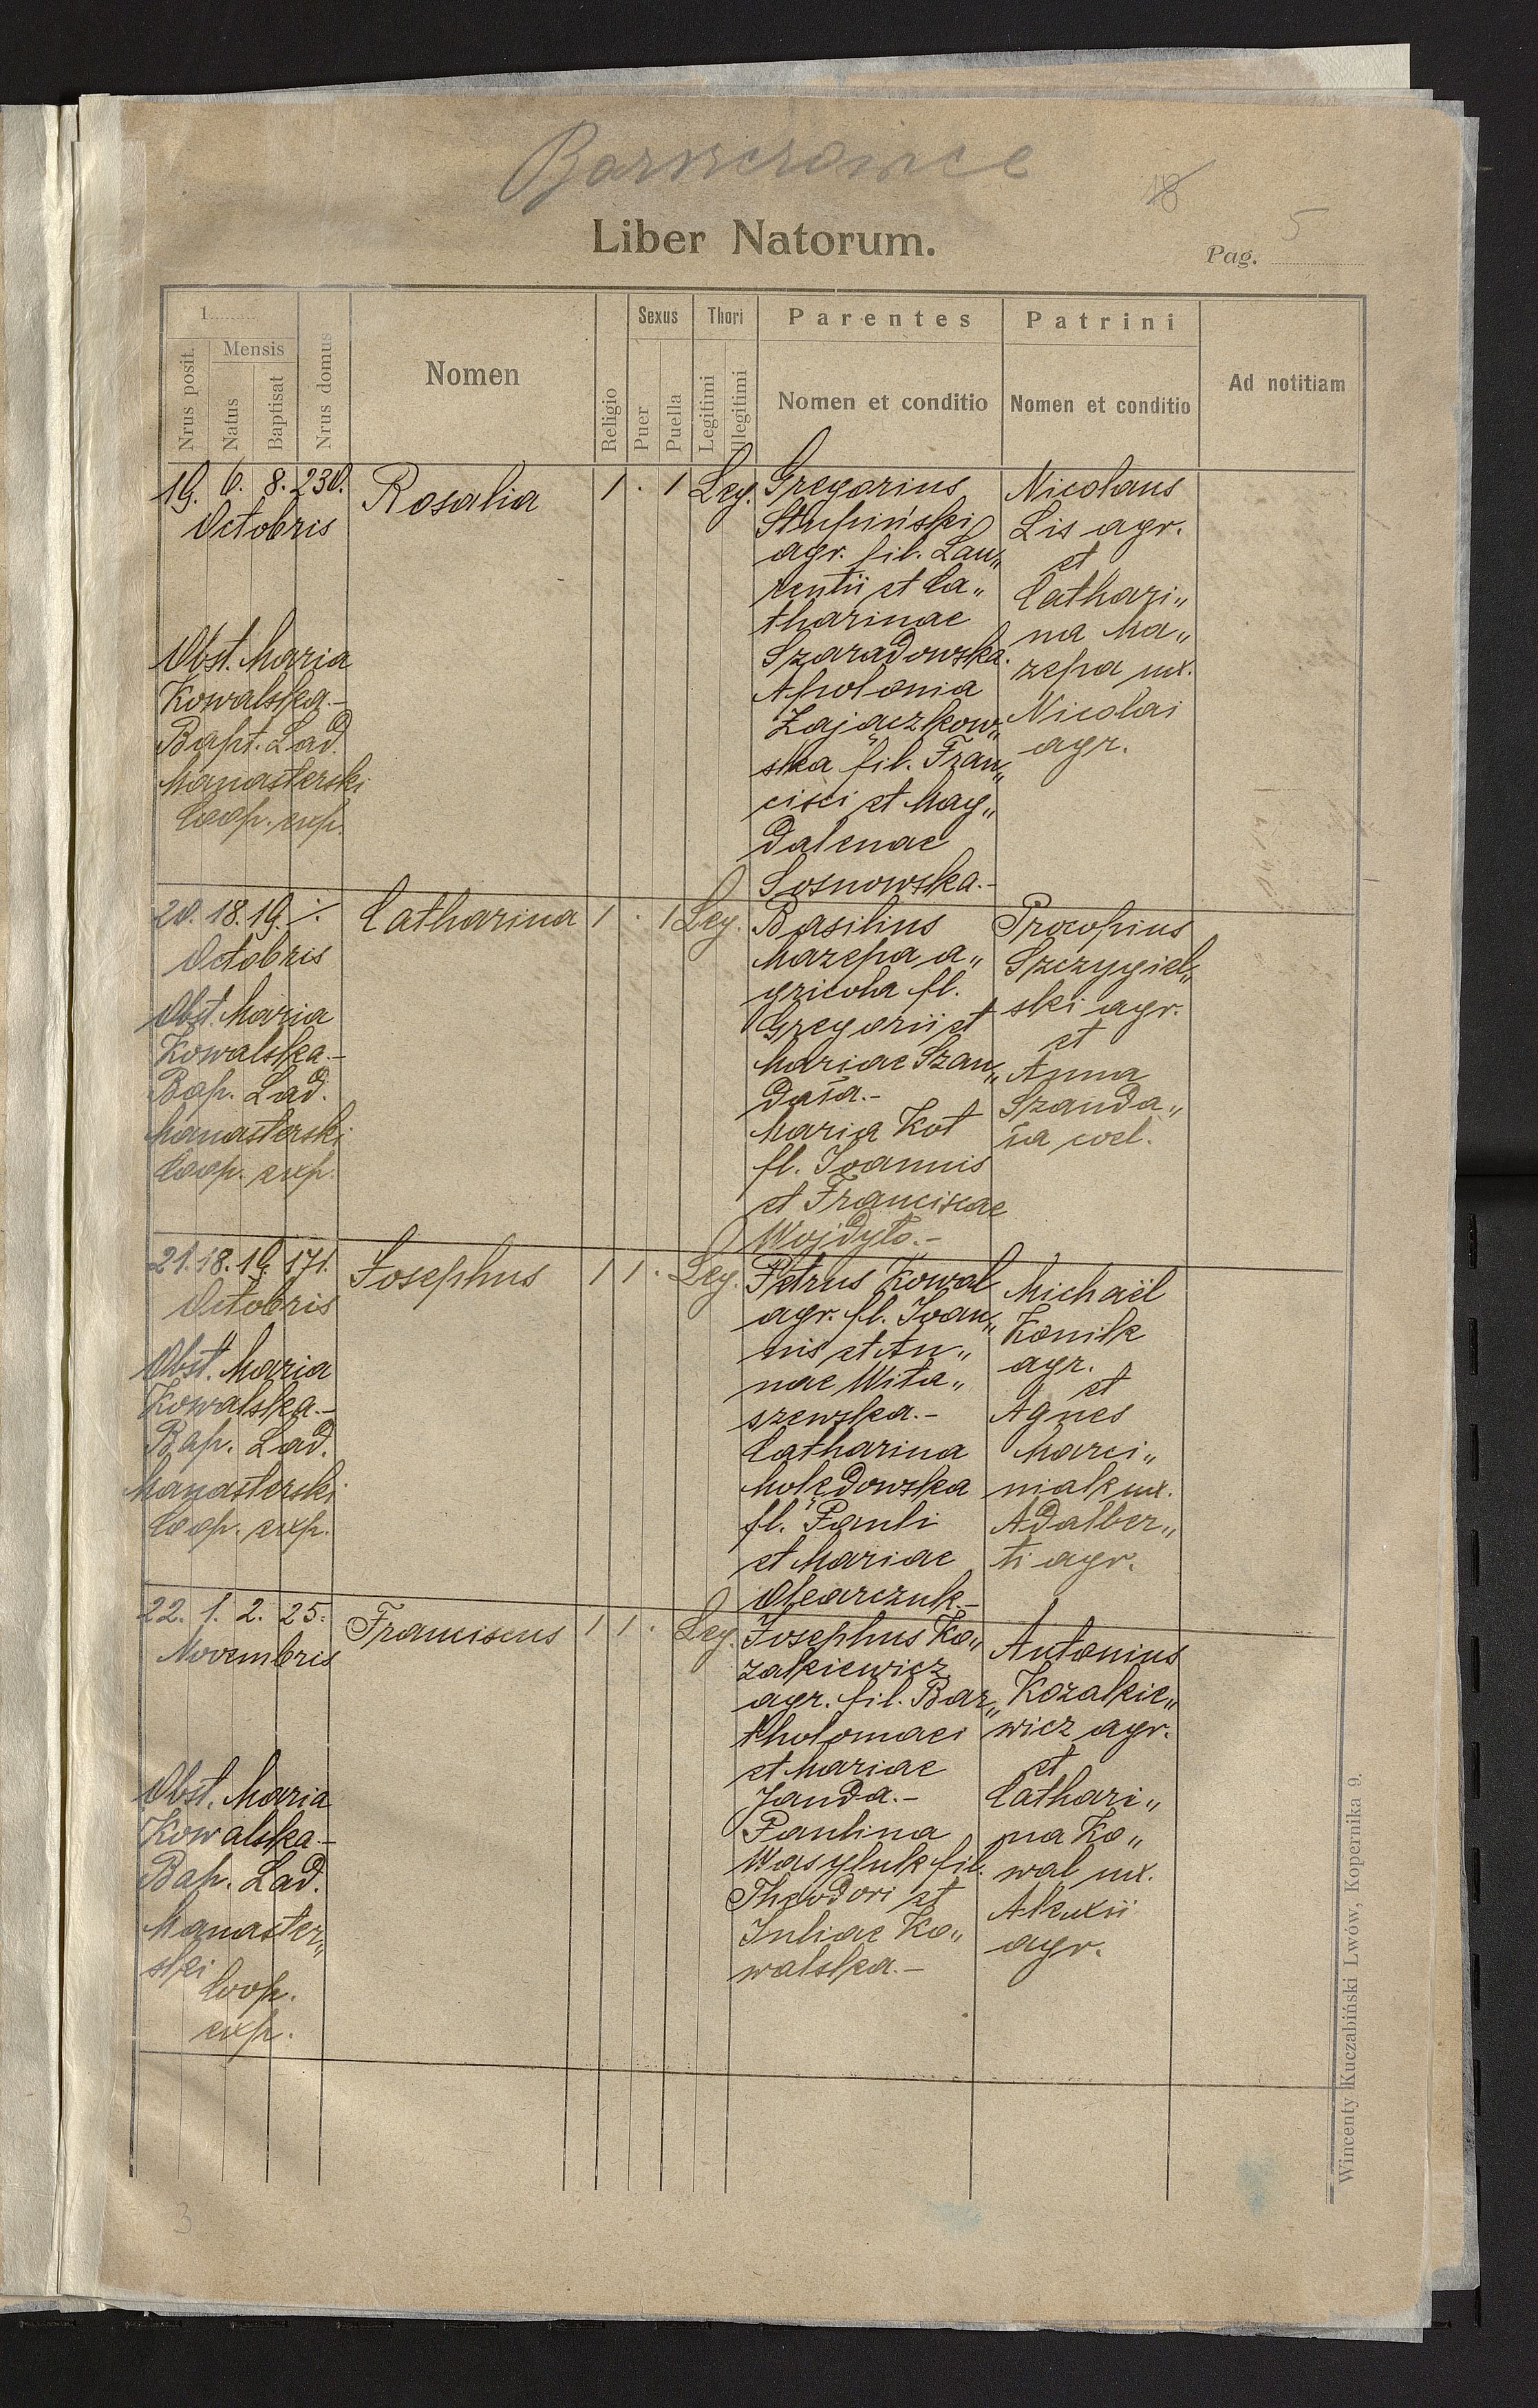 18
5
Liber Natorum.
Pag.
1
Nrus posit.
Mensis
Natus
Baptisat
Nrus domus
Nomen
Religio
Sexus
Puer
Puella
Thori
Legitimi
Illegitimi
Parentes
Nomen et conditio
Patrini
Nomen et conditio
Ad notitiam
19. 6. 8. 230.
Octobris
Obst. Maria
Kowalska.-
Bapt. Lad.
Manasterski
Coop. exp.
Rosalia
1 . 1 Leg.
Gregorius
Stupiński
agr. fil. Lau„
rentii et Ca„
tharinae
Szaradowska.
Apolonia
Zajączkow„
ska fil. Fran„
cisci et Mag„
dalenae
Sosnowska.-
Nicolaus
Lis agr.
et
Cathari„
na Ma„
zepa ux.
Nicolai
agr.
20. 18. 19. ·/·
Octobris
Obst. Maria
Kowalska.-
Bap. Lad.
Manasterski
Coop. exp.
Catharina
1 . 1 Leg.
Basilius
Mazepa a„
gricola fl.
Gregorii et
Mariae Szan„
data.-
Maria Kot
fl. Joannis
et Franciscae
Wojdyło.-
Procopius
Szczygiel„
ski agr.
et
Anna
Szanda„
ła coel.
21. 18. 19. 171.
Octobris
Obst. Maria
Kowalska.-
Bap. Lad.
Manasterski
Coop. exp.
Josephus
1 1 . Leg.
Petrus Kowal
agr. fl. Joan„
nis et An„
nae Wita„
szewska.-
Catharina
Molędowska
fl. Pauli
et Mariae
Olearczuk.-
Michaël
Konik
agr.
et
Agnes
Marci„
niak ux.
Adalber„
ti agr.
22. 1. 2. 25.
Novembris
Obst. Maria
Kowalska.-
Bap. Lad.
Manaster„
ski
Coop.
exp.
Franciscus
1 1 . Leg.
Josephus Ko„
zakiewicz
agr. fil. Bar„
tholomaei
et Mariae
Janda.-
Paulina
Wasyluk fil.
Theodori et
Juliae Ko„
walska.-
Antonius
Kozakie„
wicz agr.
et
Cathari„
na Ko„
wal ux.
Alexii
agr.
3
Wincenty Kuczabiński Lwów, Kopernika 9.